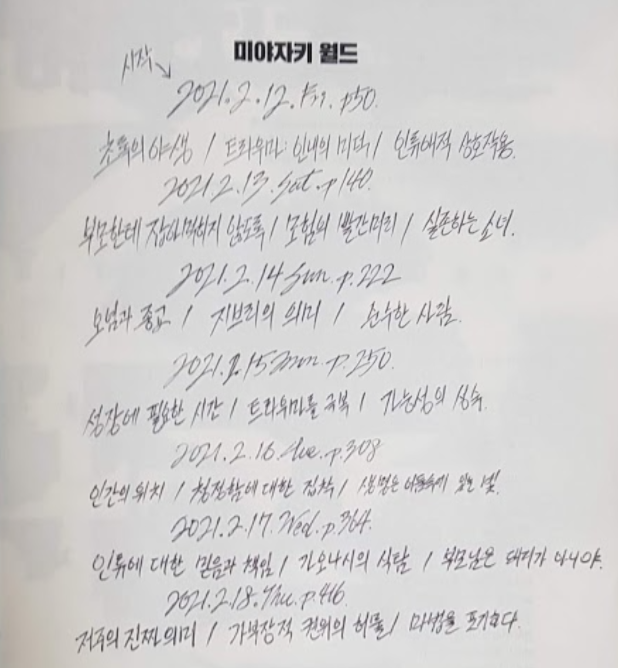 미야자키 월드
시작↘
2021.2.12. Fri. p50.
초록의 야생 / 트라우마: 인내의 미덕 / 인류애적 상호작용.
2021.2.13. Sat. p140.
부모한테 잡아먹히지 않도록 / 모험의 빨간머리 / 실존하는 소녀.
2021.2.14 Sun. p.222
모님과 종교 / 지브리의 의미 / 순수한 사람.
2021.2.15 mon. p.250.
성장에 필요한 시간 / 트라우마를 극복 / 가능성의 상속.
2021.2.16. tue. p.308
인간의 위치 / 청정함에 대한 집착 / 생명은 어둠속에 있는 빛.
2021.2.17. Wed. p.364.
인류에 대한 믿음과 책임 / 가오나시의 식탐 / 부모님은 돼지가 아니야.
2021.2.18. Thu. p.416.
저주의 진짜 의미 / 가부장적 권위의 허물 / 마법을 포기하다.